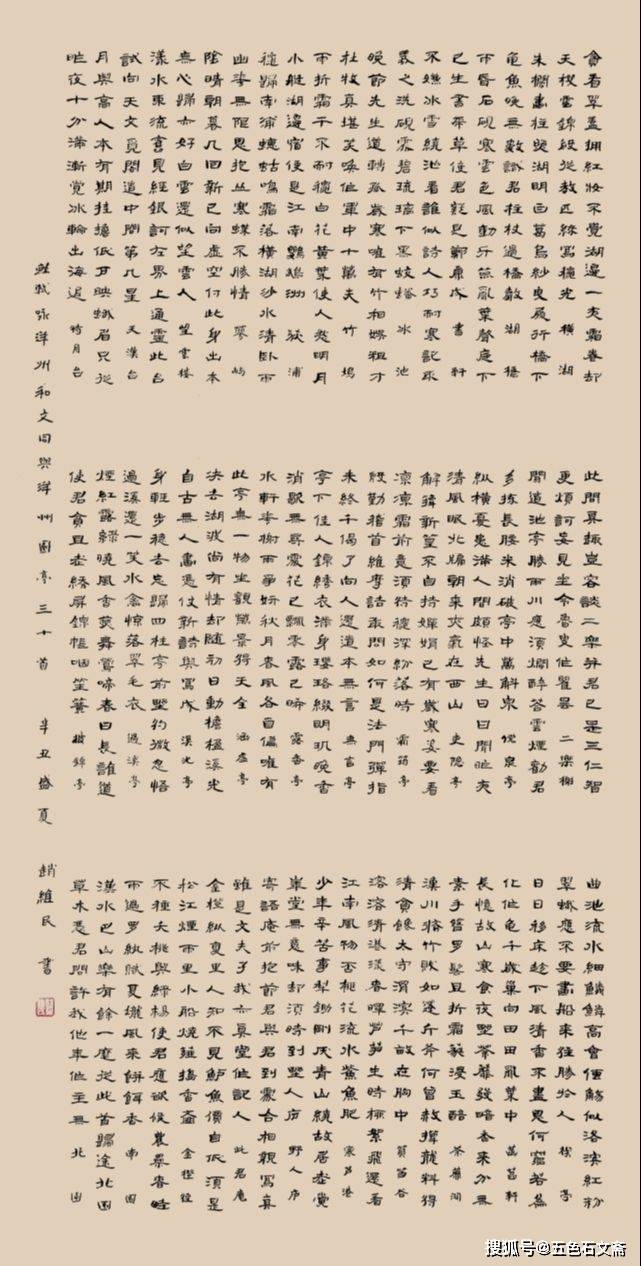 貪看翠蓋擁紅妝不覺湖邊一夜霜卷却
天機雲錦段從教匹練寫穠光 橫湖
朱欄畫柱照湖明白葛烏紗曳履行橋下
龜魚晚無數識君拄杖過橋聲 湖橋
雨昏石硯寒雲色風動牙籤亂葉聲庭下
已生書帶草使君疑是鄭康成 書軒
不嫌冰雪繞池看誰似詩人巧耐寒記取
羲之洗硯處碧琉璃下黑蛟蟠 冰池
晚節先生道轉孤歲寒唯有竹相娛粗才
杜牧真堪笑喚作軍中十萬夫 竹塢
雨折霜干不耐穐白花黃葉使人愁明月
小艇湖邊宿便是江南鸚鵡洲 荻浦
穐歸南浦蟪蛄鳴霜落橫湖沙水清臥雨
幽花無限思抱叢寒蝶不勝情 蓼嶼
陰晴朝暮几回新已向虛空付此身出本
無心歸亦好白雲還似望雲人 望雲樓
漾水東流舊見經銀潢左界上通靈此台
試向天文覓閣道中間第几星 天漢台
月與高人本有期挂檐低戶映蛾眉只從
昨夜十分滿漸覺冰輪出海遲 待月台
此間真趣豈容談二樂并君已是三仁智
更煩訶妄見坐令魯叟作瞿曇 二樂榭
聞道池亭勝兩川應須爛醉答雲煙勸君
多揀長腰米消破亭中萬斛泉 灙泉亭
縱橫憂患滿人間頗怪先生日日閒昨夜
清風眠北牖朝來爽氣在西山 吏隱亭
解籜新篁不自持嬋娟已有歲寒姿要看
凜凜霜前意須待秋深粉落時 霜筠亭
殷勤稽首維摩詰敢問如何是法門彈指
未終千偈了向人還道本無言 無言亭
亭下佳人錦繡衣滿身瓔珞綴明璣晚香
消歇無尋處花已飄零露已晞 露香亭
水軒花榭兩爭妍秋月春風各自偏唯有
此亭無一物坐觀萬景得天全 涵虛亭
決去湖波尚有情却隨初日動檐楹溪光
自古無人畫憑仗新詩與寫成 溪光亭
身輕步穩去忘歸四柱亭前野彴微忽悟
過溪還一笑水禽驚落翠毛衣 過溪亭
煙紅露綠曉風香燕舞鶯啼春日長誰道
使君貧且老繡屏錦帳咽笙簧 披錦亭
曲池流水細鱗鱗高會傳觴似洛濱紅粉
翠蛾應不要畫船來往勝於人 禊亭
日日移床趁下風清香不盡思何窮若為
化作龜千歲巢向田田亂葉中 菡萏軒
長憶故山寒食夜野荼蘼發暗香來分無
素手簪羅髻且折霜蕤浸玉醅 荼蘼洞
漢川修竹賤如蓬斤斧何曾赦籜龍料得
清貧饞太守渭濱千畝在胸中 篔簹谷
溶溶清港漾春暉蘆筍生時柳絮飛還有
江南風物否桃花流水鮆魚肥 寒蘆港
少年辛苦事犁鋤剛厭青山繞故居老覺
華堂無意味却須時到野人廬 野人廬
寄語庵前抱節君與君到處合相親寫真
雖是文夫子我亦真堂作記人 此君庵
金橙縱復里人知不見鱸魚價自低須是
松江煙雨里小船燒薤搗香齏 金橙徑
不種夭桃與綠楊使君應欲候農桑春畦
雨過羅紈膩夏壠風來餅餌香 南園
漢水巴山樂有餘一麾從此首歸途北園
草木憑君問許我他年作主無 北園
蘇軾詠洋州和文同與洋州園亭三十首 辛丑盛夏 趙維民 書
搜狐号@五色石文斋